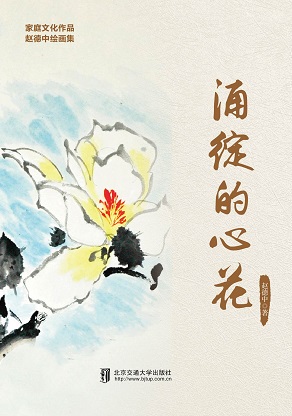 家庭文化作品
赵德中绘画集
涌绽的心花
赵德中◎著
北京交通大学出版社
http://www.bjtup.com.cn